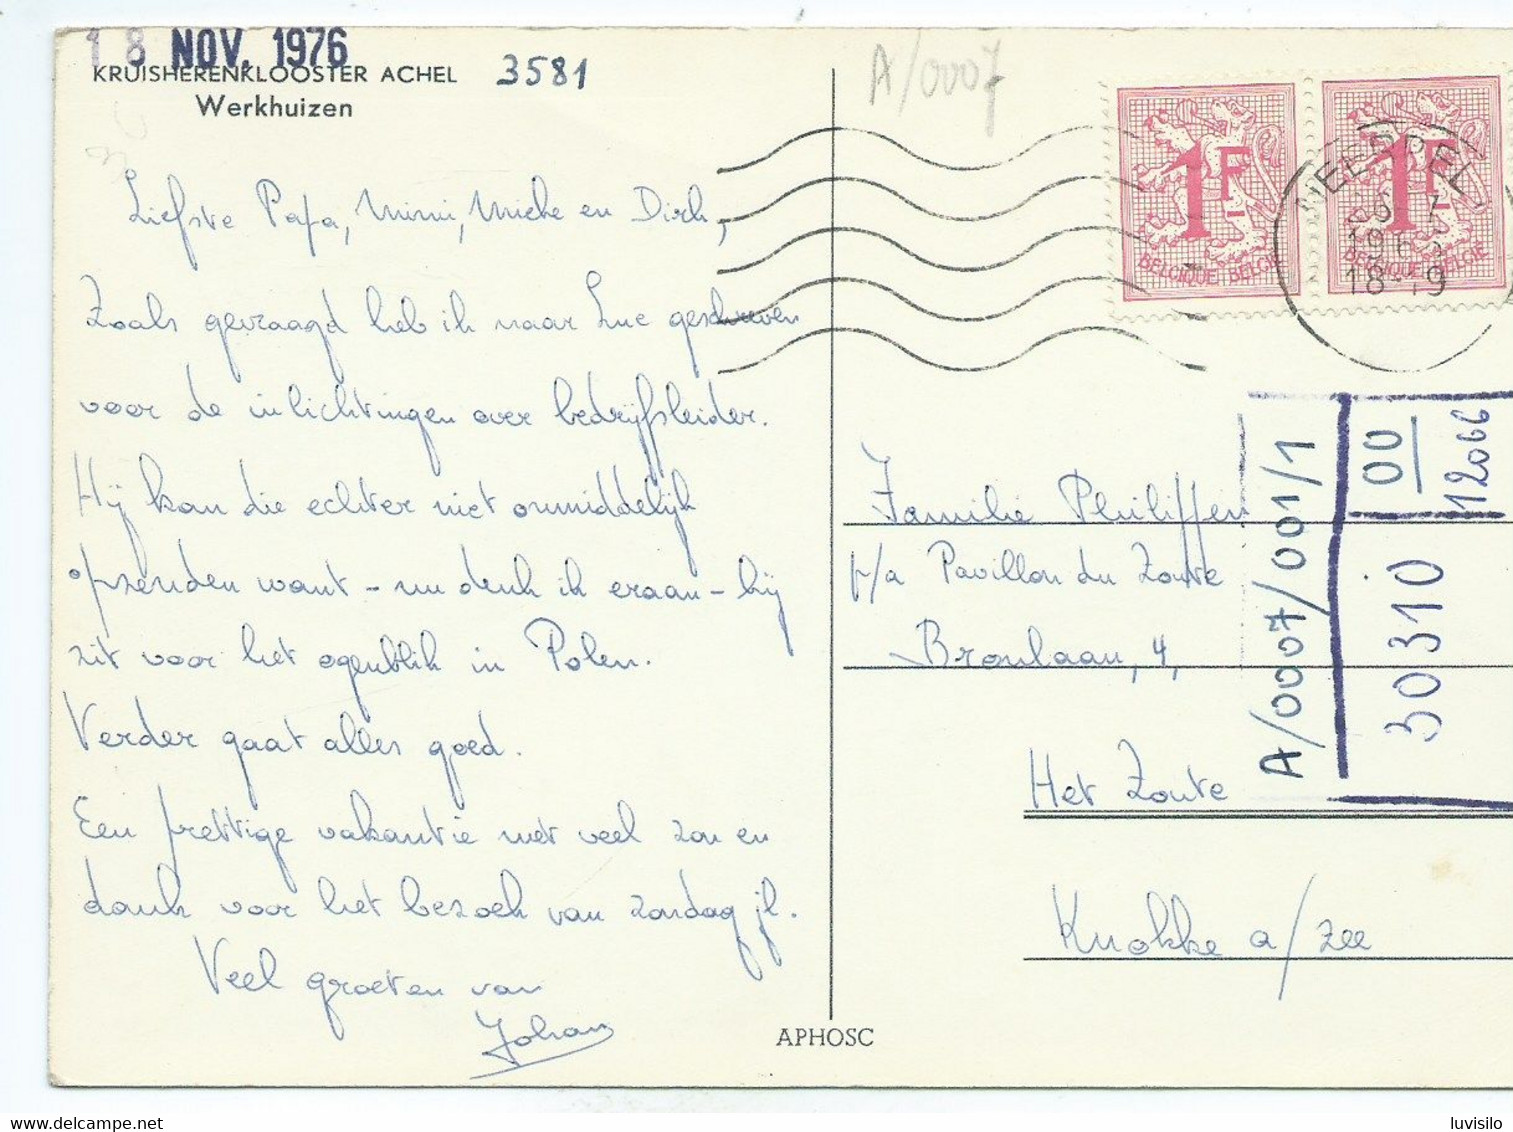 18 NOV. 1976
KRUISHERENKLOOSTER ACHEL
Werkhuizen
3581
A/0007
Liefste Papa, Mimi, Mieke en Dirk,
Zoals gevraagd heb ik naar Luc geschreven
voor de inlichtingen over bedrijfsleider.
Hij kan die echter niet onmiddelijk
opzenden want - nu denk ik eraan - hij
zit voor het ogenblik in Polen.
Verder gaat alles goed.
Een prettige vakantie met veel zon en
dank voor het bezoek van zondag jl.
Veel groeten van
Johan
1F
BELGIQUE BELGIË
1F
BELGIQUE BELGIË
NEERPELT
18-19
Familie Philippen
p/a Pavillon du Zoute
Bronlaan, 4,
Het Zoute
Knokke a/zee
A/0007/001/1
00
12066
30310
APHOSC
luvisilo